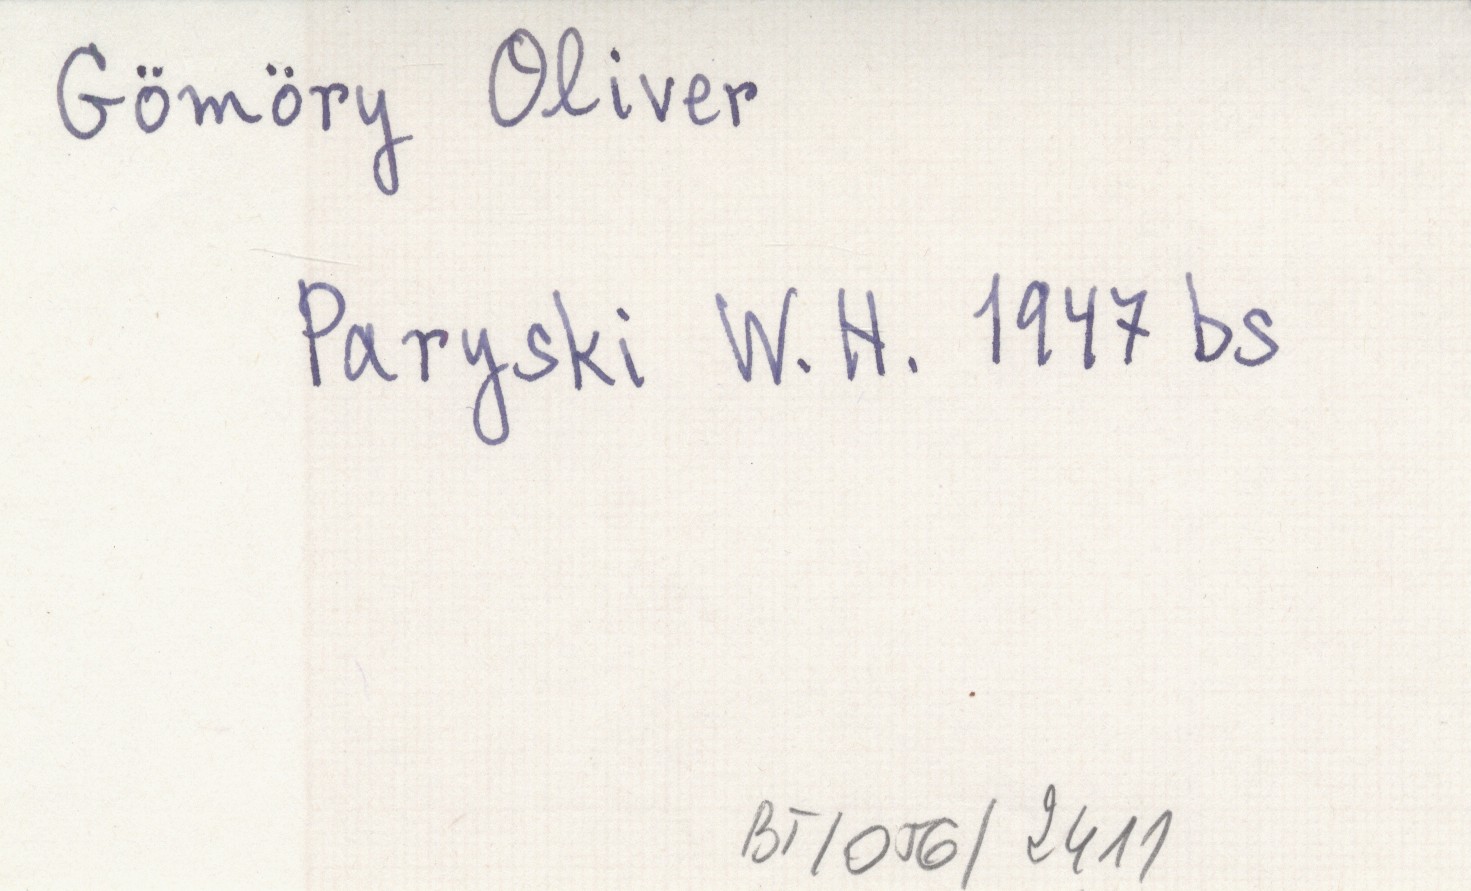 Gömöry Oliver
Paryski W. H. 1947 bs
BT/056/2411